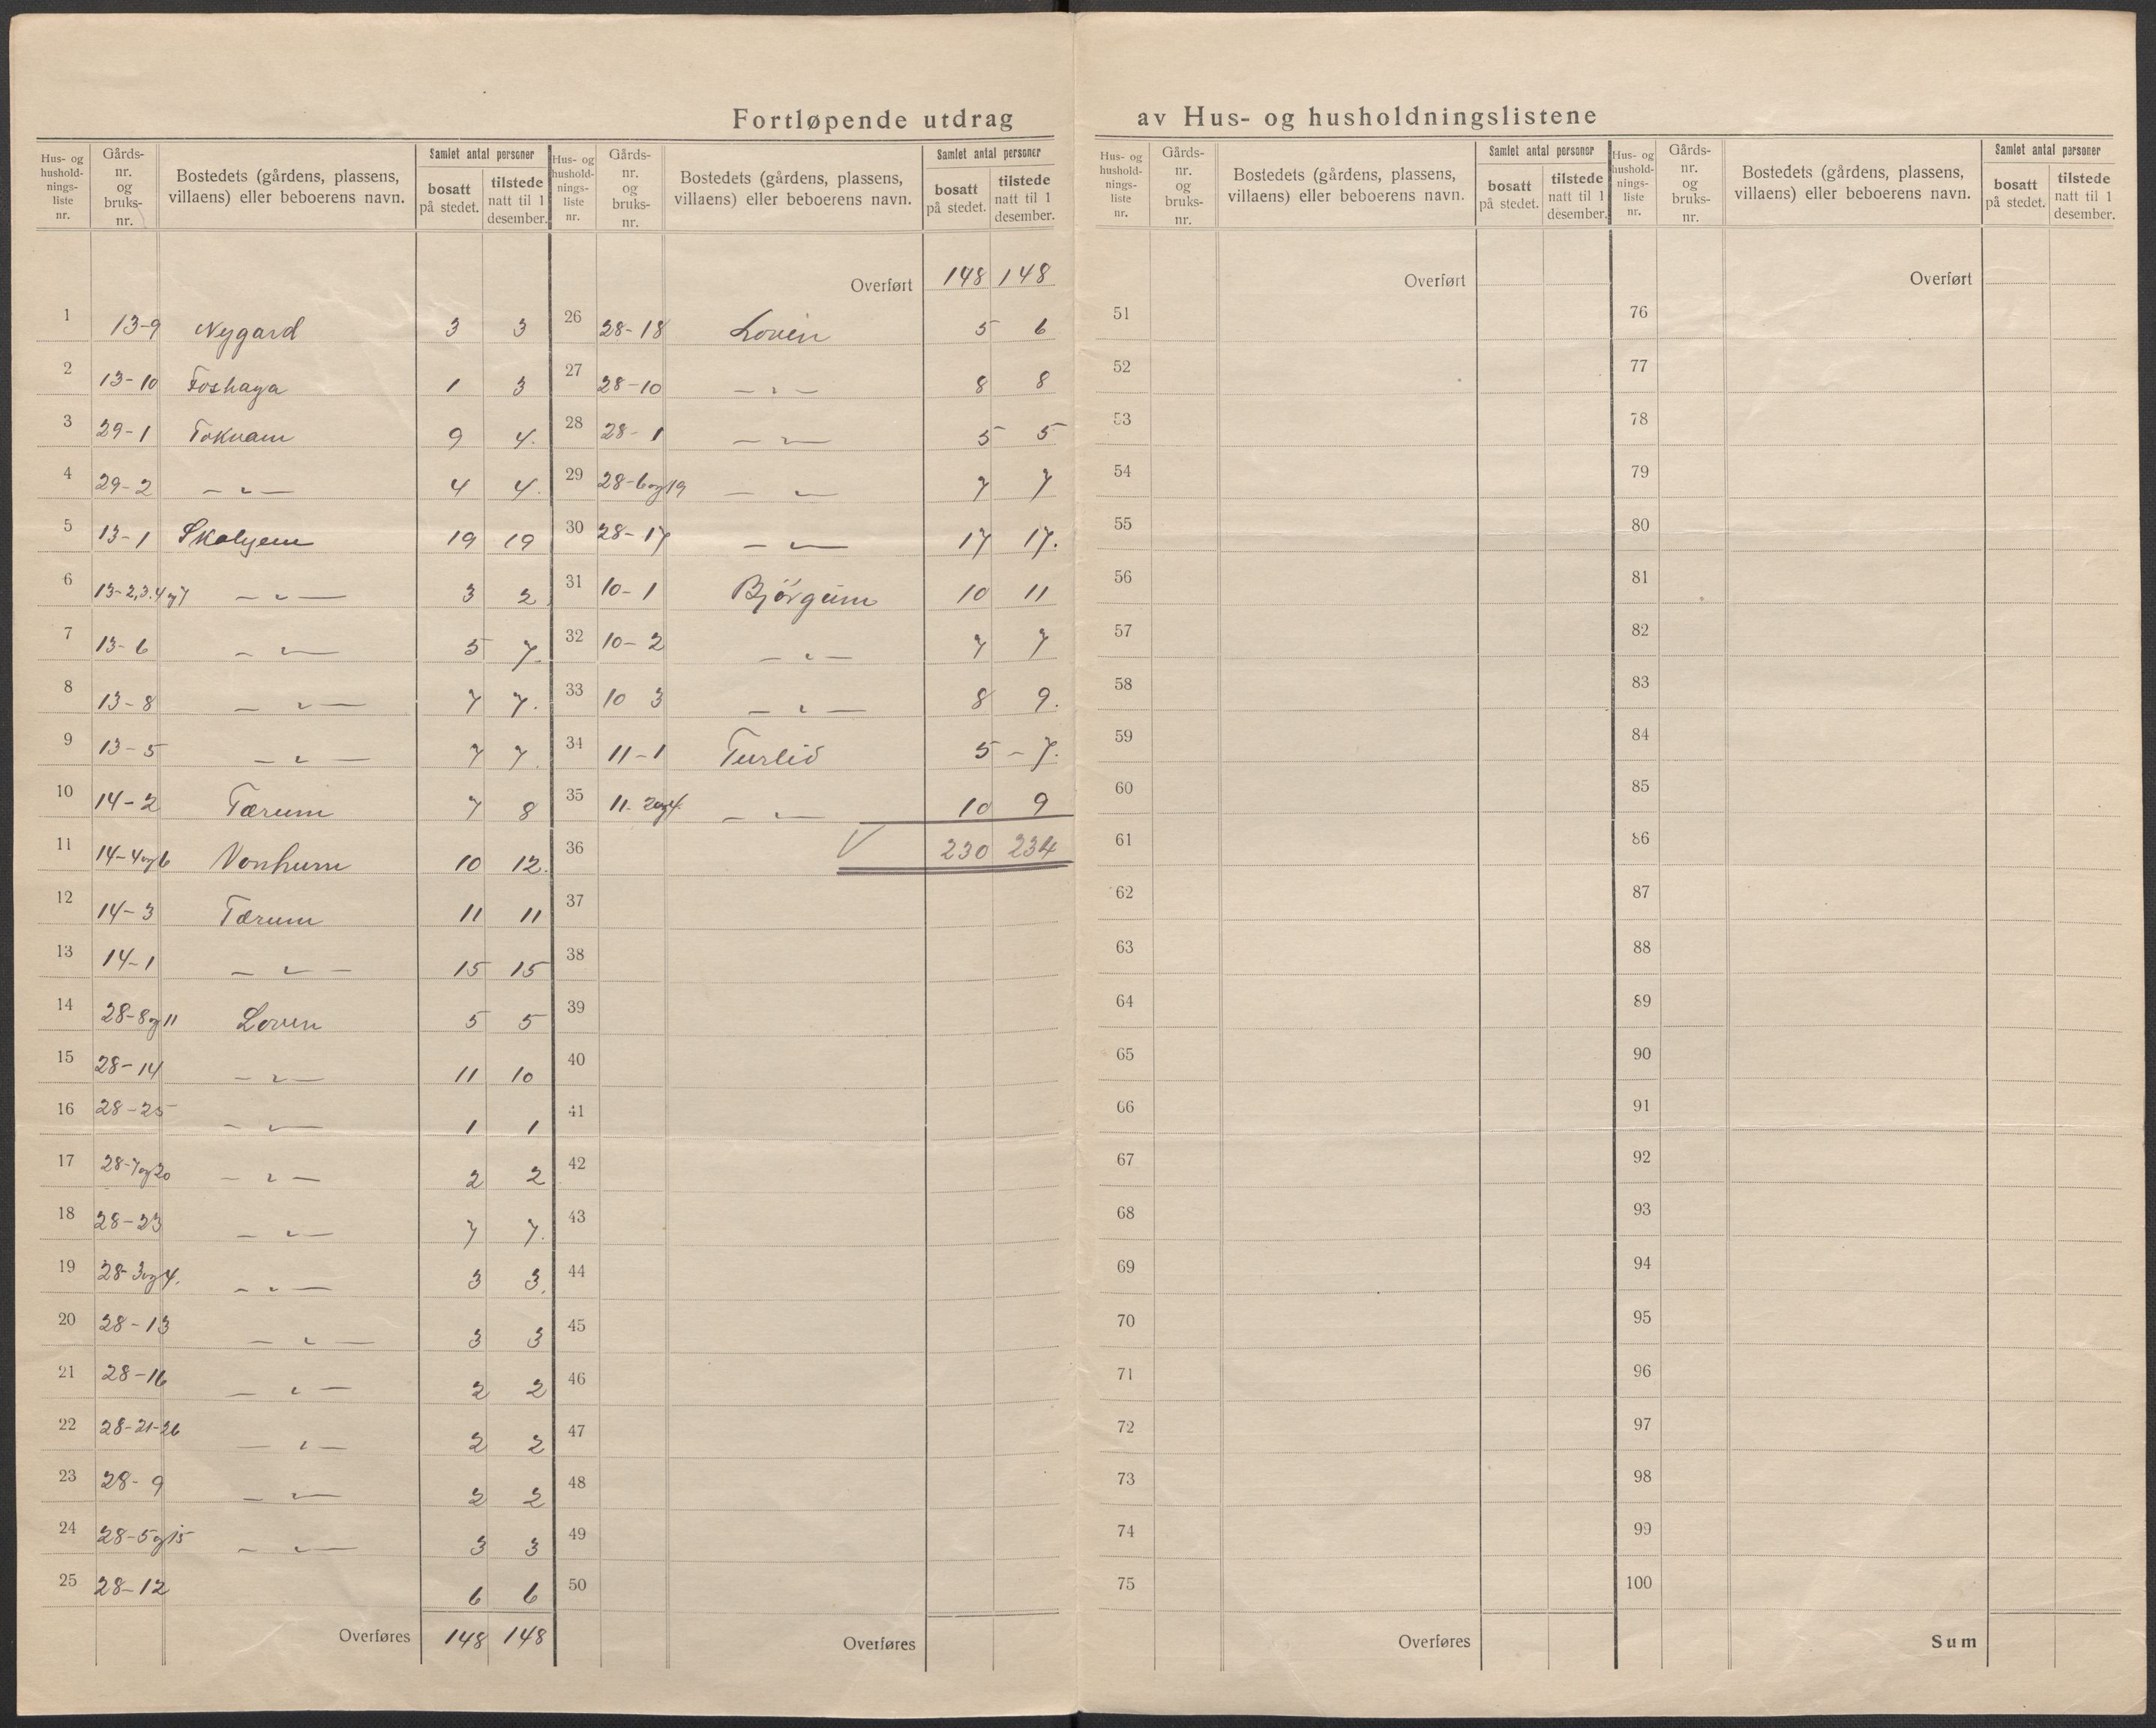 Fortløpende utdrag av Hus- og husholdningslistene
Hus- og hushold-nings-liste nr. Gårds-nr. og bruks-nr. Bostedets (gårdens, plassens, villaens) eller beboerens navn. Samlet antal personer bosatt på stedet. tilstede natt til 1 desember.
1 13-9 Nygard 3 3
2 13-10 Foshaga 1 3
3 29-1 Tokvam 9 4.
4 29-2 — " — 4 4.
5 13-1 Skalyem 19 19
6 13-2,3.4 og 7 — " — 3 2
7 13-6 — " — 5 7.
8 13-8 — " — 7 7.
9 13-5 — " — 7 7.
10 14-2 Tærum 7 8
11 14-4 og 6 Vonhum 10 12.
12 14-3 Tærum 11 11
13 14-1 — " — 15 15
14 28-8 og 11 Loven 5 5
15 28-14 — " — 11 10
16 28-25 — " — 1 1
17 28-7 og 20 — " — 2 2
18 28-23 — " — 7 7.
19 28-3 og 4. — " — 3 3.
20 28-13 — " — 3 3
21 28-16 — " — 2 2
22 28-21-26 — " — 2 2
23 28-9 — " — 2 2
24 28-5 og 15 — " — 3 3
25 28-12 6 6
Overføres 148 148
Hus- og hushold-nings-liste nr. Gårds-nr. og bruks-nr. Bostedets (gårdens, plassens, villaens) eller beboerens navn. Samlet antal personer bosatt på stedet. tilstede natt til 1 desember.
Overført 148 148
26 28-18 Loven 5 6
27 28-10 — " — 8 8
28 28-1 — " — 5 5
29 28-6 og 19 — " — 7 7
30 28-17 — " — 17 17.
31 10-1 Bjørgum 10 11
32 10-2 — " — 7 7
33 10 3 — " — 8 9.
34 11-1 Turlid 5 – 7.
35 11-2 og 4. — " — 10 9
36 230 234
37
38
39
40
41
42
43
44
45
46
47
48
49
50
Overføres
Hus- og hushold-nings-liste nr. Gårds-nr. og bruks-nr. Bostedets (gårdens, plassens, villaens) eller beboerens navn. Samlet antal personer bosatt på stedet. tilstede natt til 1 desember.
Overført
51
52
53
54
55
56
57
58
59
60
61
62
63
64
65
66
67
68
69
70
71
72
73
74
75
Overføres
Hus- og hushold-nings-liste nr. Gårds-nr. og bruks-nr. Bostedets (gårdens, plassens, villaens) eller beboerens navn. Samlet antal personer bosatt på stedet. tilstede natt til 1 desember.
Overført
76
77
78
79
80
81
82
83
84
85
86
87
88
89
90
91
92
93
94
95
96
97
98
99
100
Sum